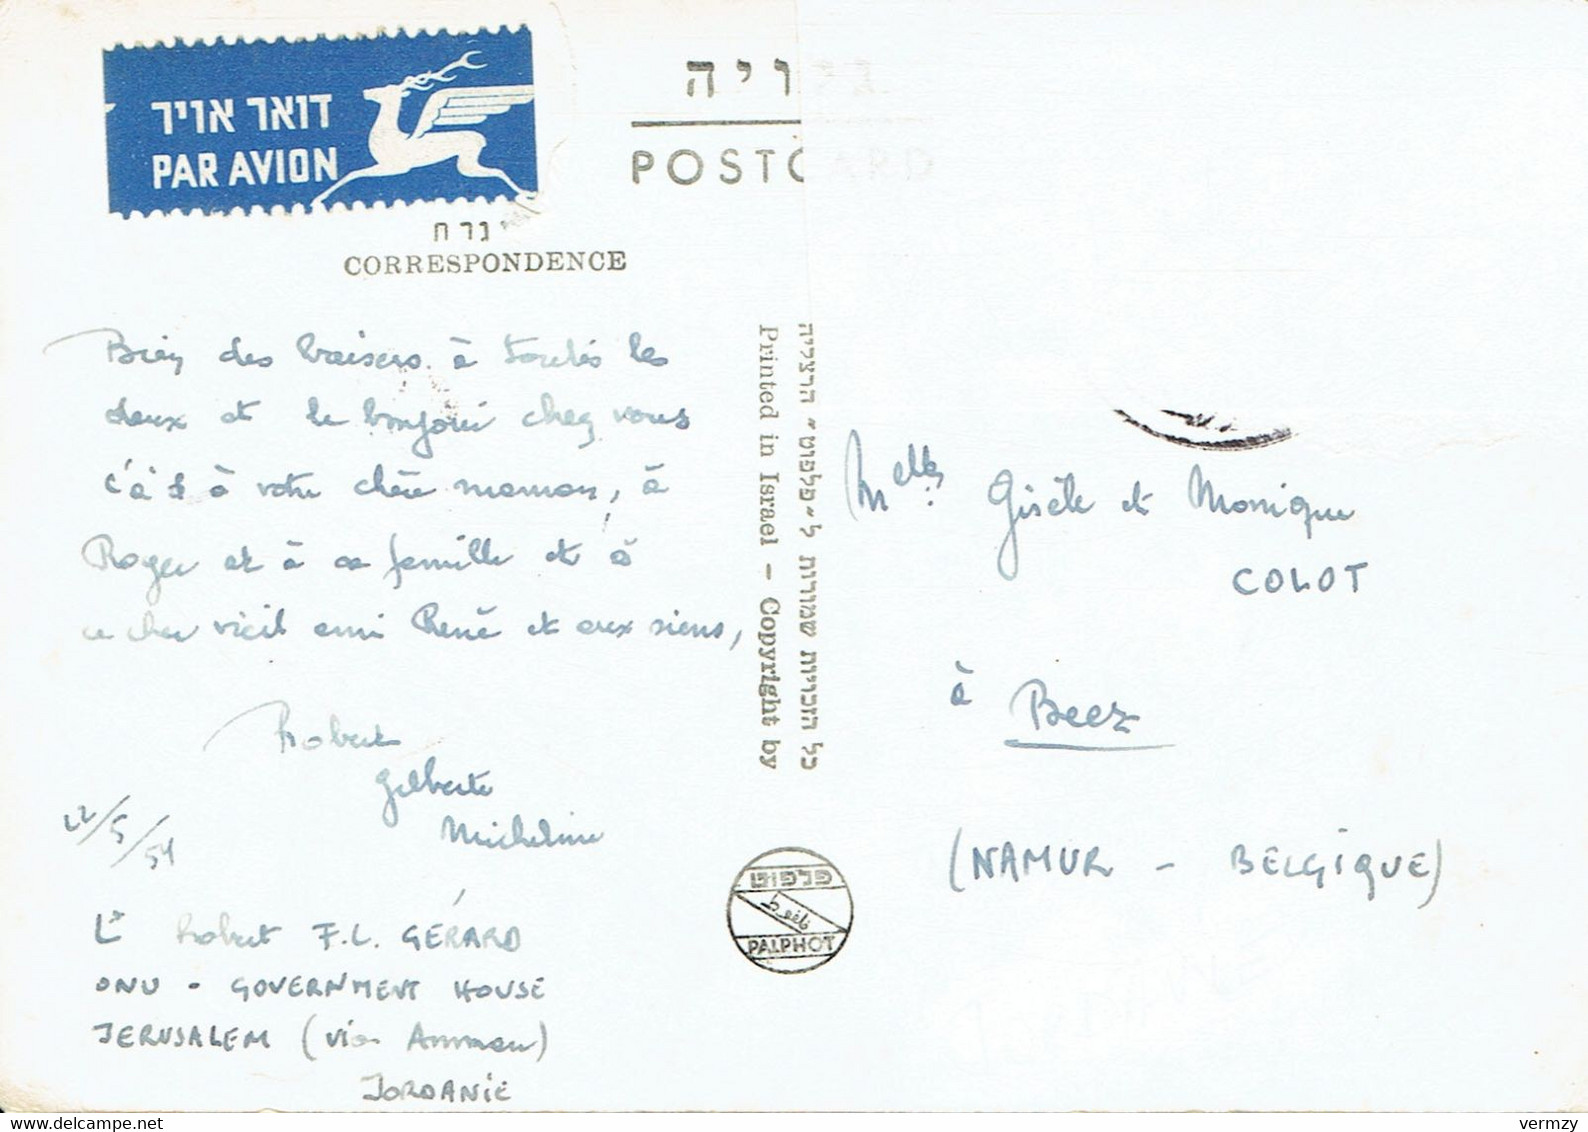 דואר אויר
PAR AVION
POSTCARD
CORRESPONDENCE
Bien des baisers à toutes les
deux et le bonjour chez vous
c'à d à votre chère maman, à
Roger et à sa famille et à
ce cher vieil ami René et aux siens,
Robert
Gilberte
Micheline
22/5/54
Lt Robert F.L. GÉRARD
ONU - GOVERNMENT HOUSE
JERUSALEM (via Amman)
JORDANIE
כל הזכויות שמורות ל"פלפוט" הרצליה
Printed in Israel - Copyright by
פלפוט
PALPHOT
Melles Gisèle et Monique
COLOT
à Beez
(NAMUR - BELGIQUE)
vermzy